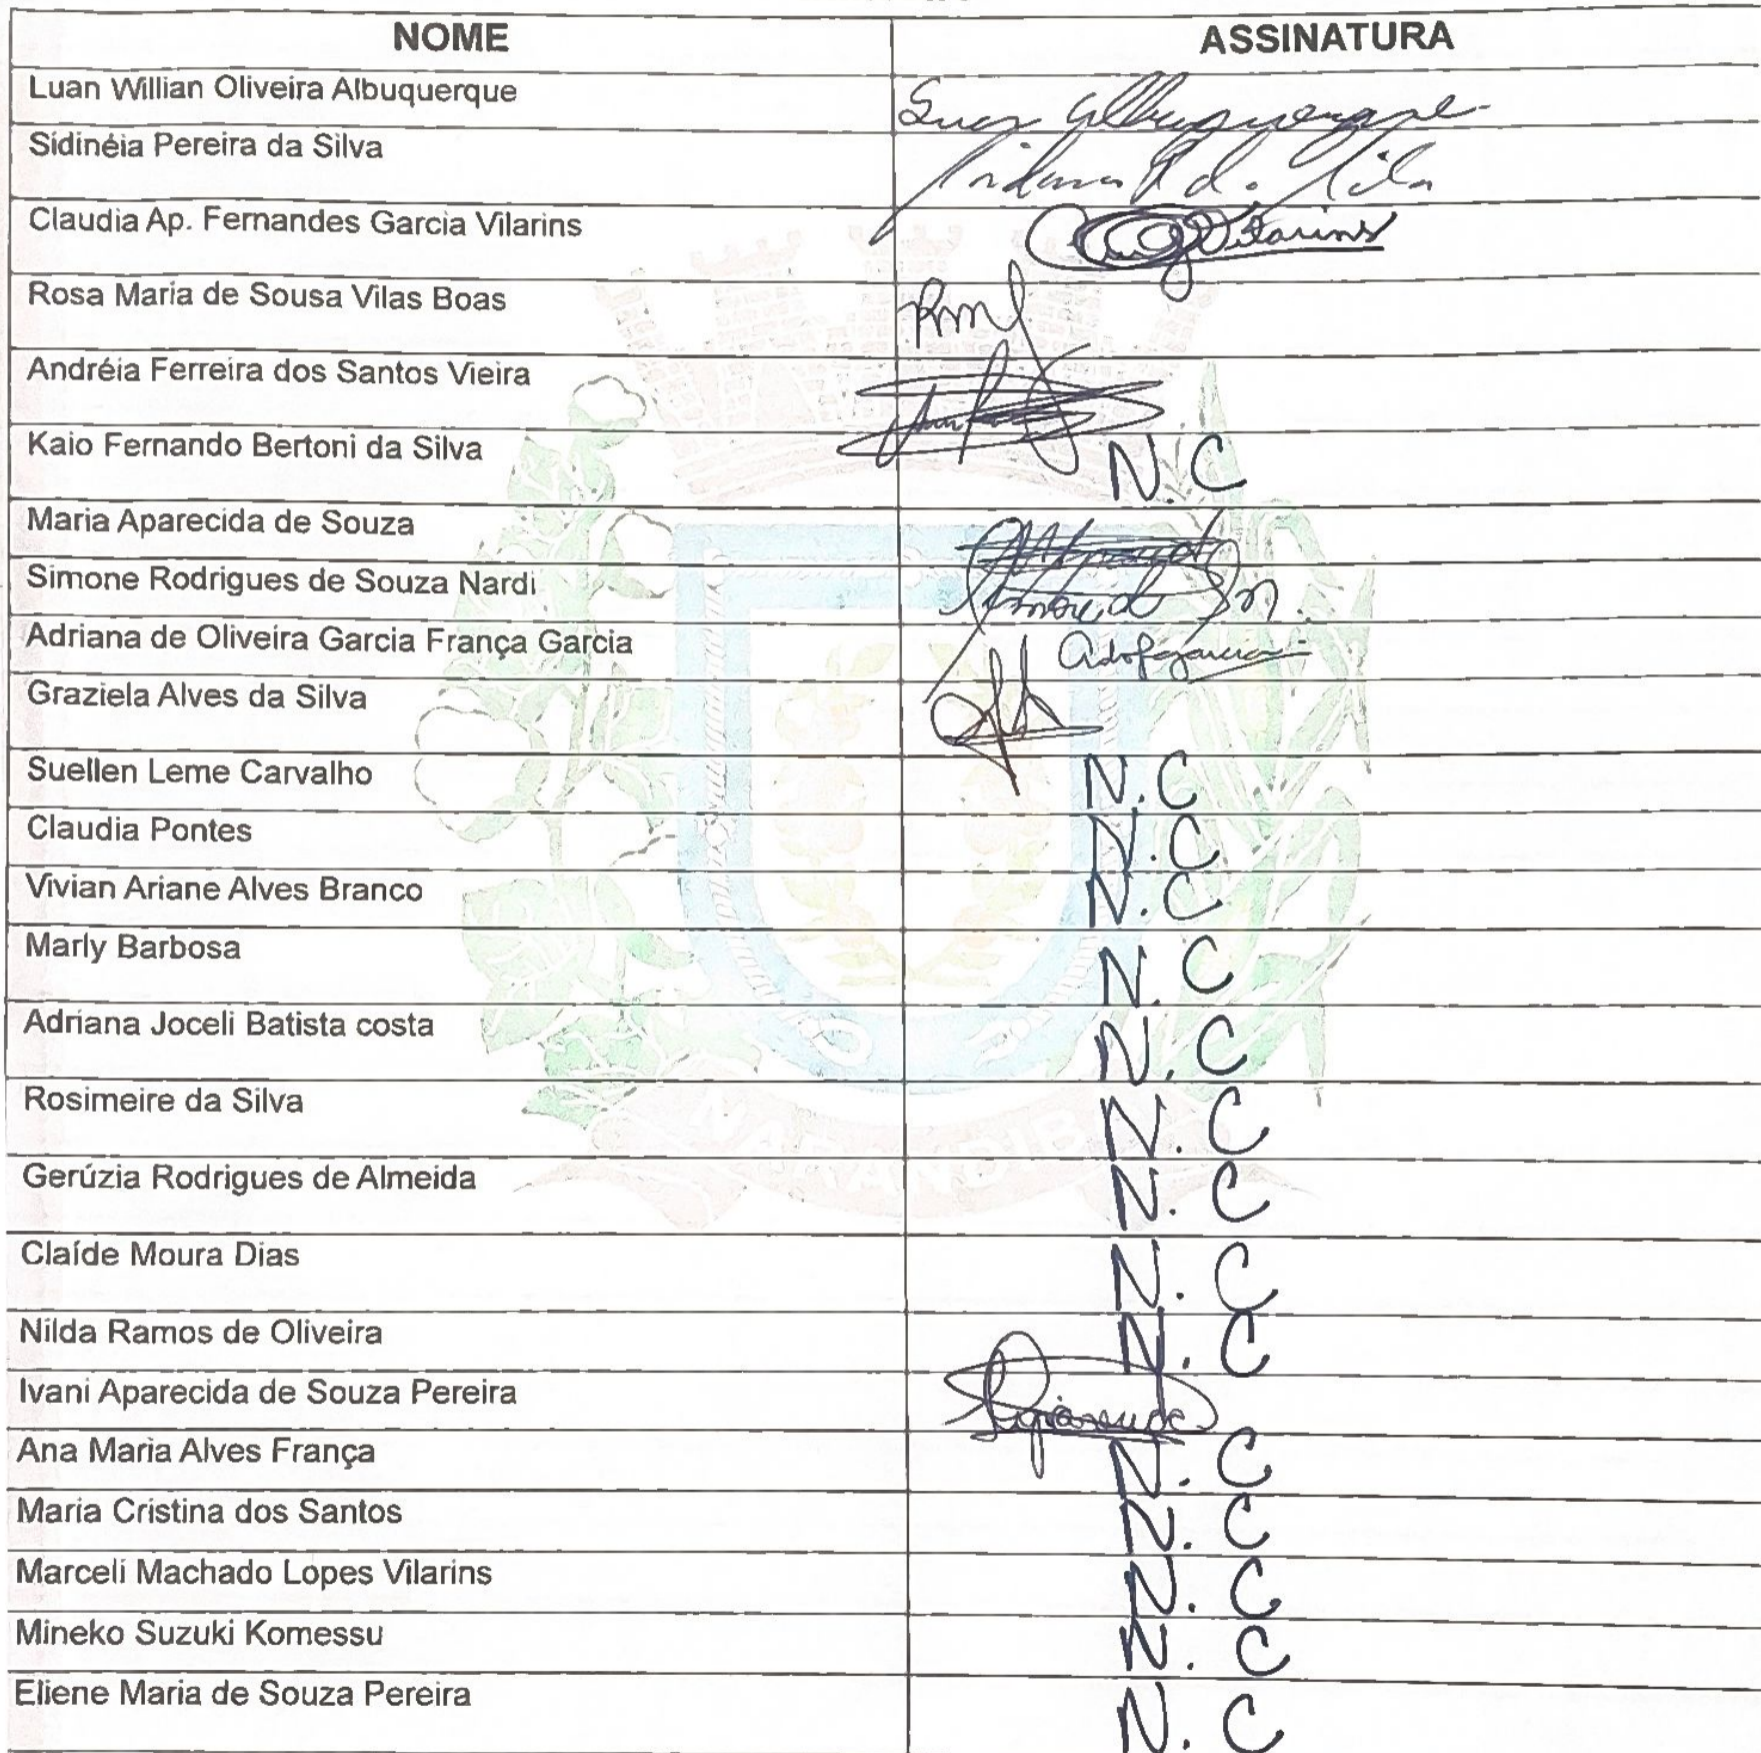 NOME ASSINATURA
Luan Willian Oliveira Albuquerque Luan Albuquerque
Sidinéia Pereira da Silva
Claudia Ap. Fernandes Garcia Vilarins Vilarins
Rosa Maria de Sousa Vilas Boas
Andréia Ferreira dos Santos Vieira
Kaio Fernando Bertoni da Silva N.C
Maria Aparecida de Souza
Simone Rodrigues de Souza Nardi
Adriana de Oliveira Garcia França Garcia
Graziela Alves da Silva
Suellen Leme Carvalho N.C
Claudia Pontes N.C
Vivian Ariane Alves Branco N.C
Marly Barbosa N.C
Adriana Joceli Batista costa N.C
Rosimeire da Silva N.C
NARANDIBA
Gerúzia Rodrigues de Almeida N.C
Claíde Moura Dias N.C
Nilda Ramos de Oliveira N.C
Ivani Aparecida de Souza Pereira
Ana Maria Alves França N.C
Maria Cristina dos Santos N.C
Marceli Machado Lopes Vilarins N.C
Mineko Suzuki Komessu N.C
Eliene Maria de Souza Pereira N.C